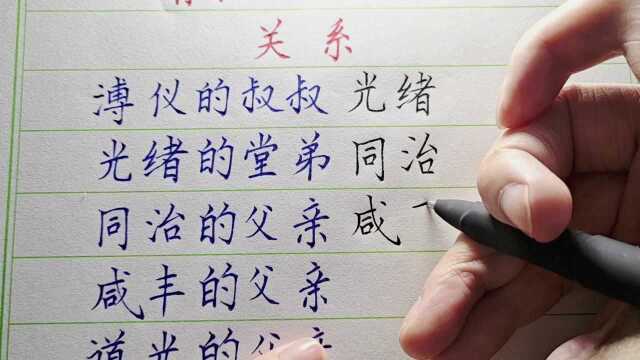 关系
溥仪的叔叔光绪
光绪的堂弟同治
同治的父亲咸
咸丰的父亲
道光的父亲